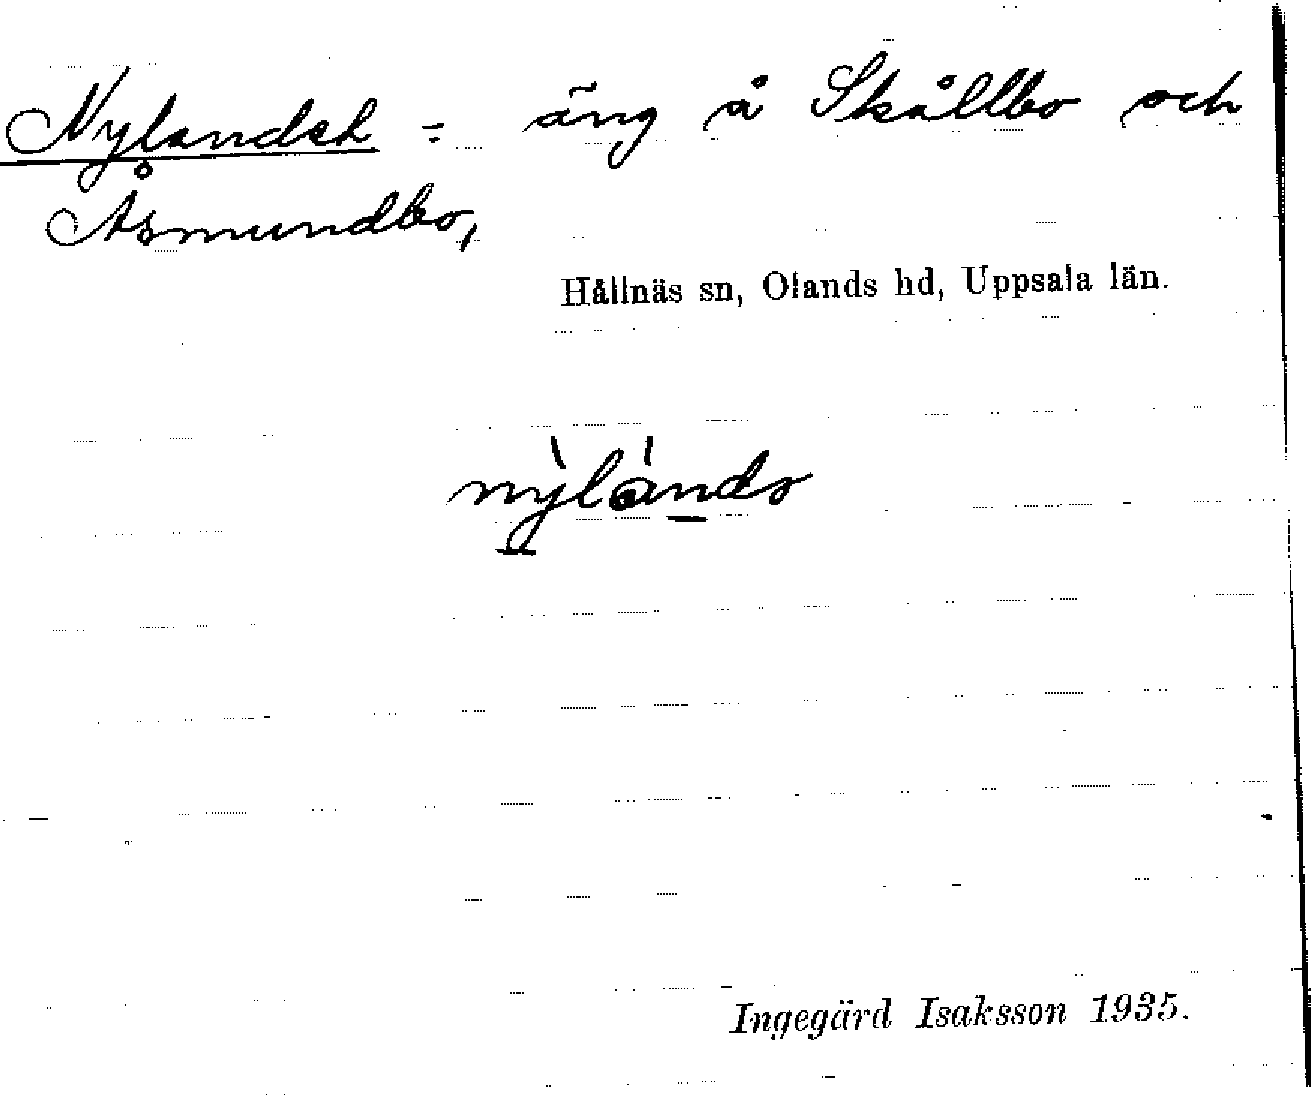 Nylandet = äng å Skållbo och
Åsmundbo,
Hållnäs sn, Olands hd, Uppsala län.
nỳlánds
Ingegärd Isaksson 1935.